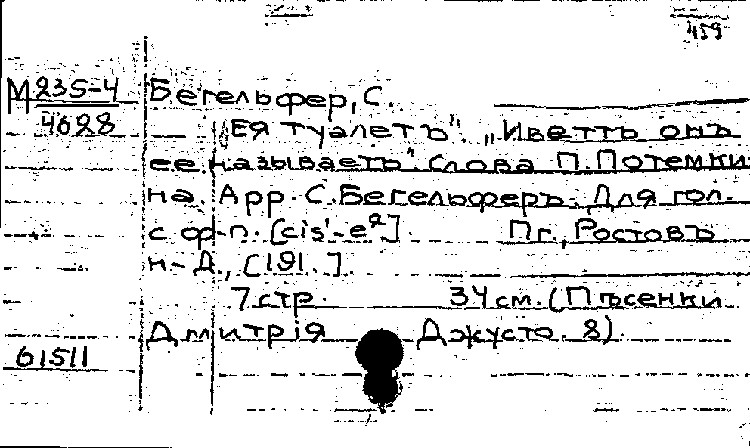 459
М 235-4
4628
Бегельфер, С.
„Ея туалетъ". „Иветтъ онъ
ее называетъ". Слова П. Потемки
на. Арр. С. Бегельферъ. Для гол.
с ф-п. [cis'-e²]. Пг., Ростовъ
н-Д., [191. ].
7 стр. 34 см. (Пѣсенки
Дмитрія Джусто. 8).
61511